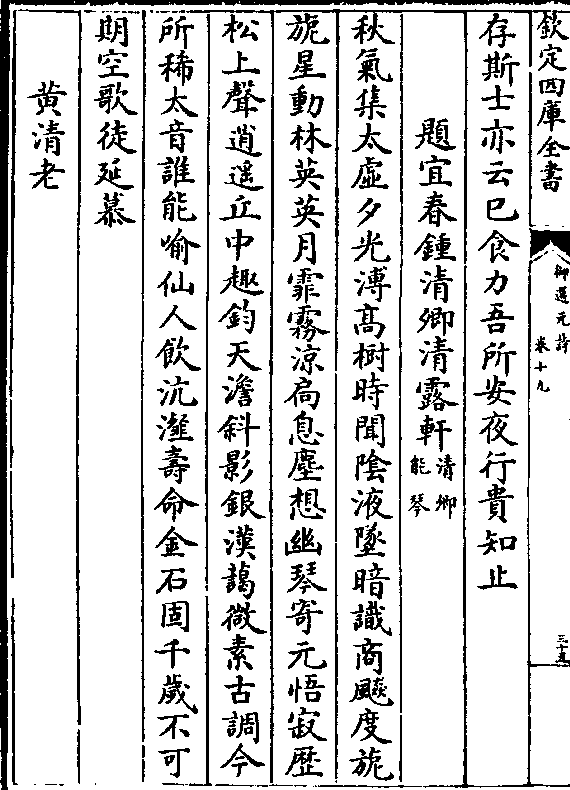 欽定四庫全書
御選元詩
卷十九
三十五
存斯士亦云已食力吾所安夜行貴知止
題宜春鍾清卿清露軒清卿能琴
秋氣集太虛夕光漙高樹時聞陰液墜暗識商飈度旎
旎星動林英英月霏霧涼扃息塵想幽琴寄元悟寂歷
松上聲逍遥丘中趣鈞天澹斜影銀漢藹微素古調今
所稀太音誰能喻仙人飲沆瀣壽命金石固千歲不可
期空歌徒延慕
黄清老